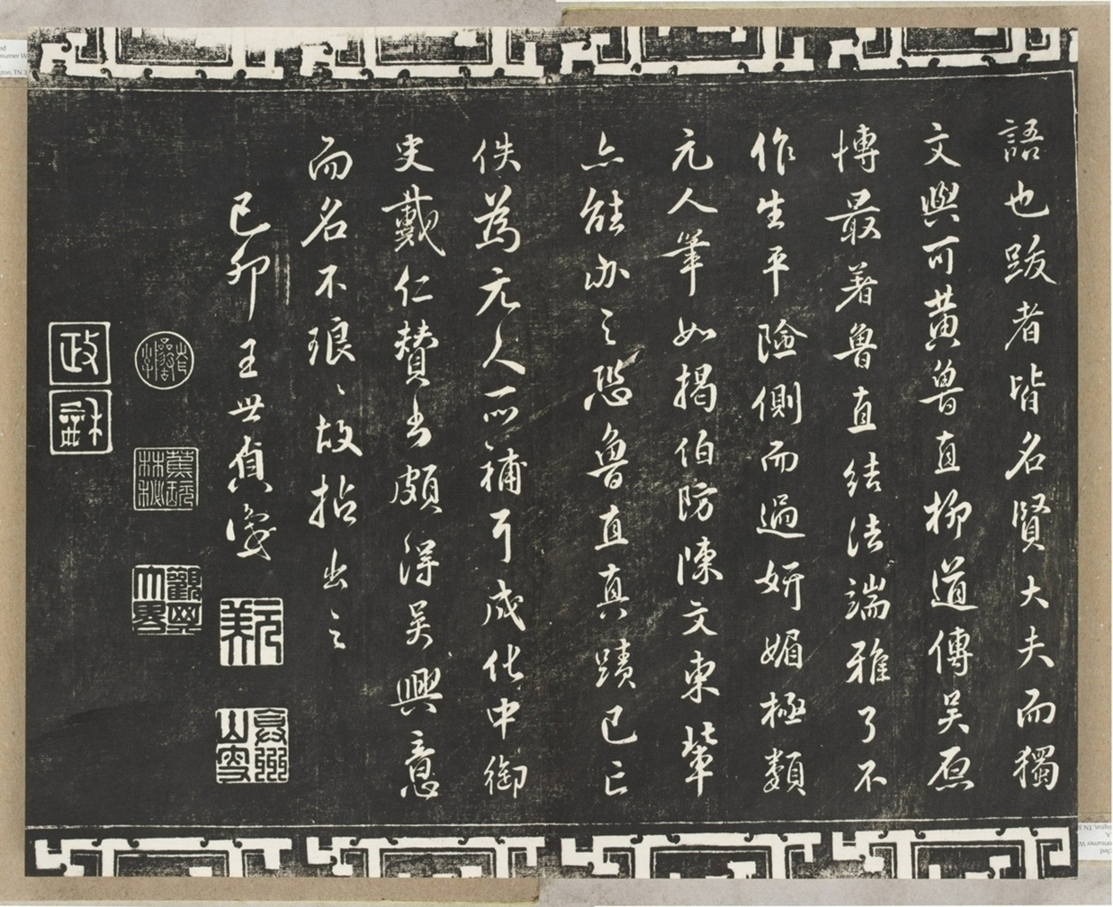 語也跋者皆名賢大夫而獨
文與可黃魯直柳道傳吳原
博最著魯直結法端雅了不
作生平險側而過妍媚極類
元人筆如揭伯防陳文東輩
亦能辦之恐魯直真蹟已亡
佚為元人所補耳成化中御
史戴仁賛書頗得吳興意
而名不琅〻故拈出之
己卯王世貞識
觀其大略
政龢